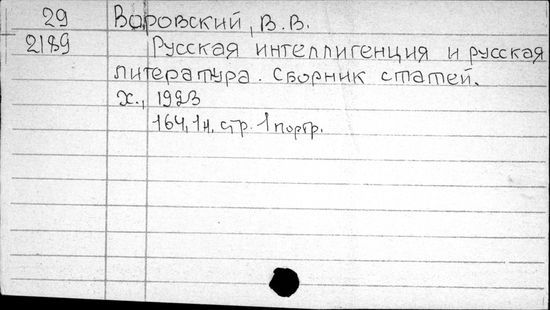 29 Воровский, В.В.
2189 Русская интеллигенция и русская
литература. Сборник статей.
Х., 1923
164, 1н. стр. 1 портр.